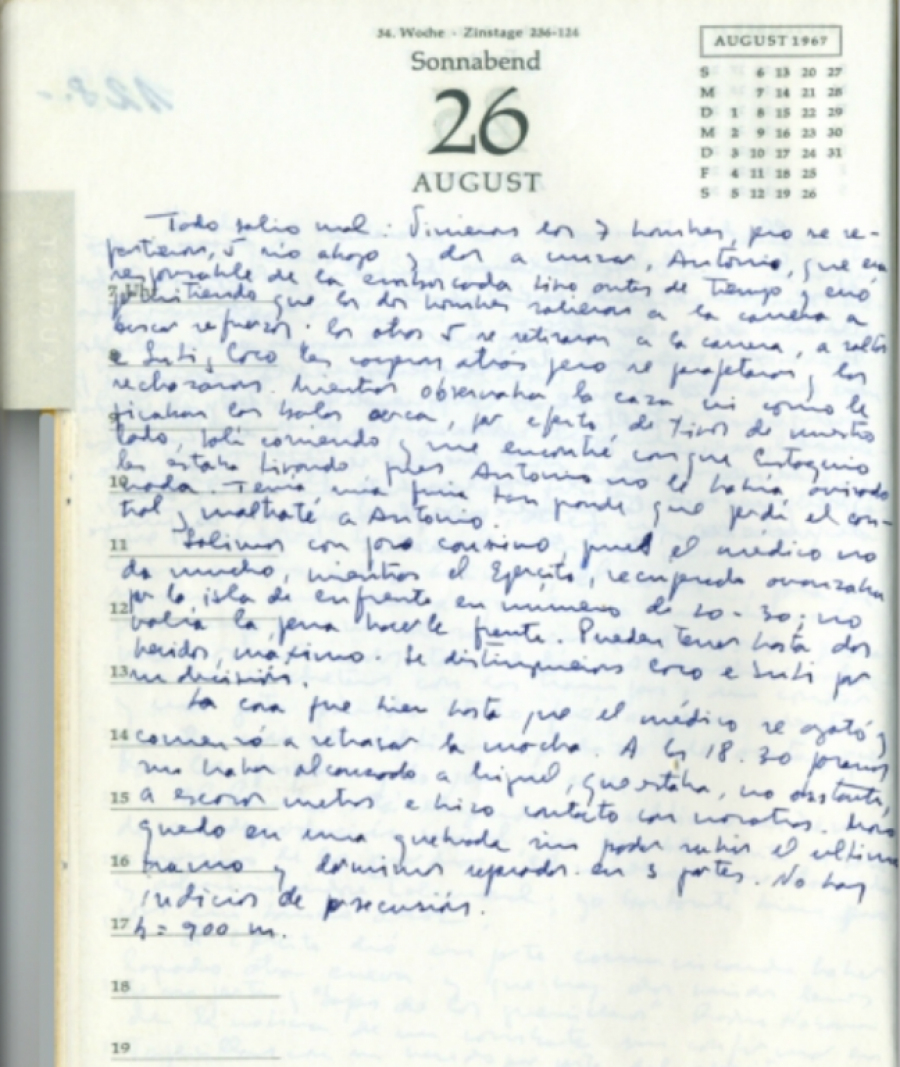 34. Woche - Zinstage 236-124
Sonnabend
26
AUGUST
AUGUST 1967
S 6 13 20 27
M 7 14 21 28
D 1 8 15 22 29
M 2 9 16 23 30
D 3 10 17 24 31
F 4 11 18 25
S 5 12 19 26
Todo salió mal: Vinieron los 7 hombres, pero se re-
partieron, 5 río abajo y dos a cruzar. Antonio, que era
responsable de la emboscada tiró antes de tiempo y erró
permitiendo que los dos hombres salieran a la carrera a
buscar refuerzos. los otros 5 se retiraron a la carrera, a saltos
e Inti y Coco les cayeron atrás pero se parapetaron y los
rechazaron. Mientras observaba la caza vi como le
picaban las balas cerca, por efecto de tiros de nuestro
lado, salí corriendo y me encontré con que Eustaquio
les estaba tirando pues Antonio no le había avisado
nada. Tenía una furia tan grande que perdí el con-
trol y maltraté a Antonio.
Salimos con paso cansino, pues el médico no
da mucho, mientras el Ejército, recuperado avanzaba
por la isla de enfrente en número de 20-30; no
valía la pena hacerle frente. Pueden tener hasta dos
heridos, máximo. Se distinguieron Coco e Inti por
su decisión.
La cosa fue bien hasta que el médico se agotó y
comenzó a retrasar la marcha. A las 18.30 paramos
sin haber alcanzado a Miguel, que estaba, no obstante,
a escasos metros e hizo contacto con nosotros. Moro
quedó en una quebrada sin poder subir el último
tramo y dormimos separados en 3 partes. No hay
indicios de persecusión.
h = 900 m.
7 Uhr
8
9
10
11
12
13
14
15
16
17
18
19